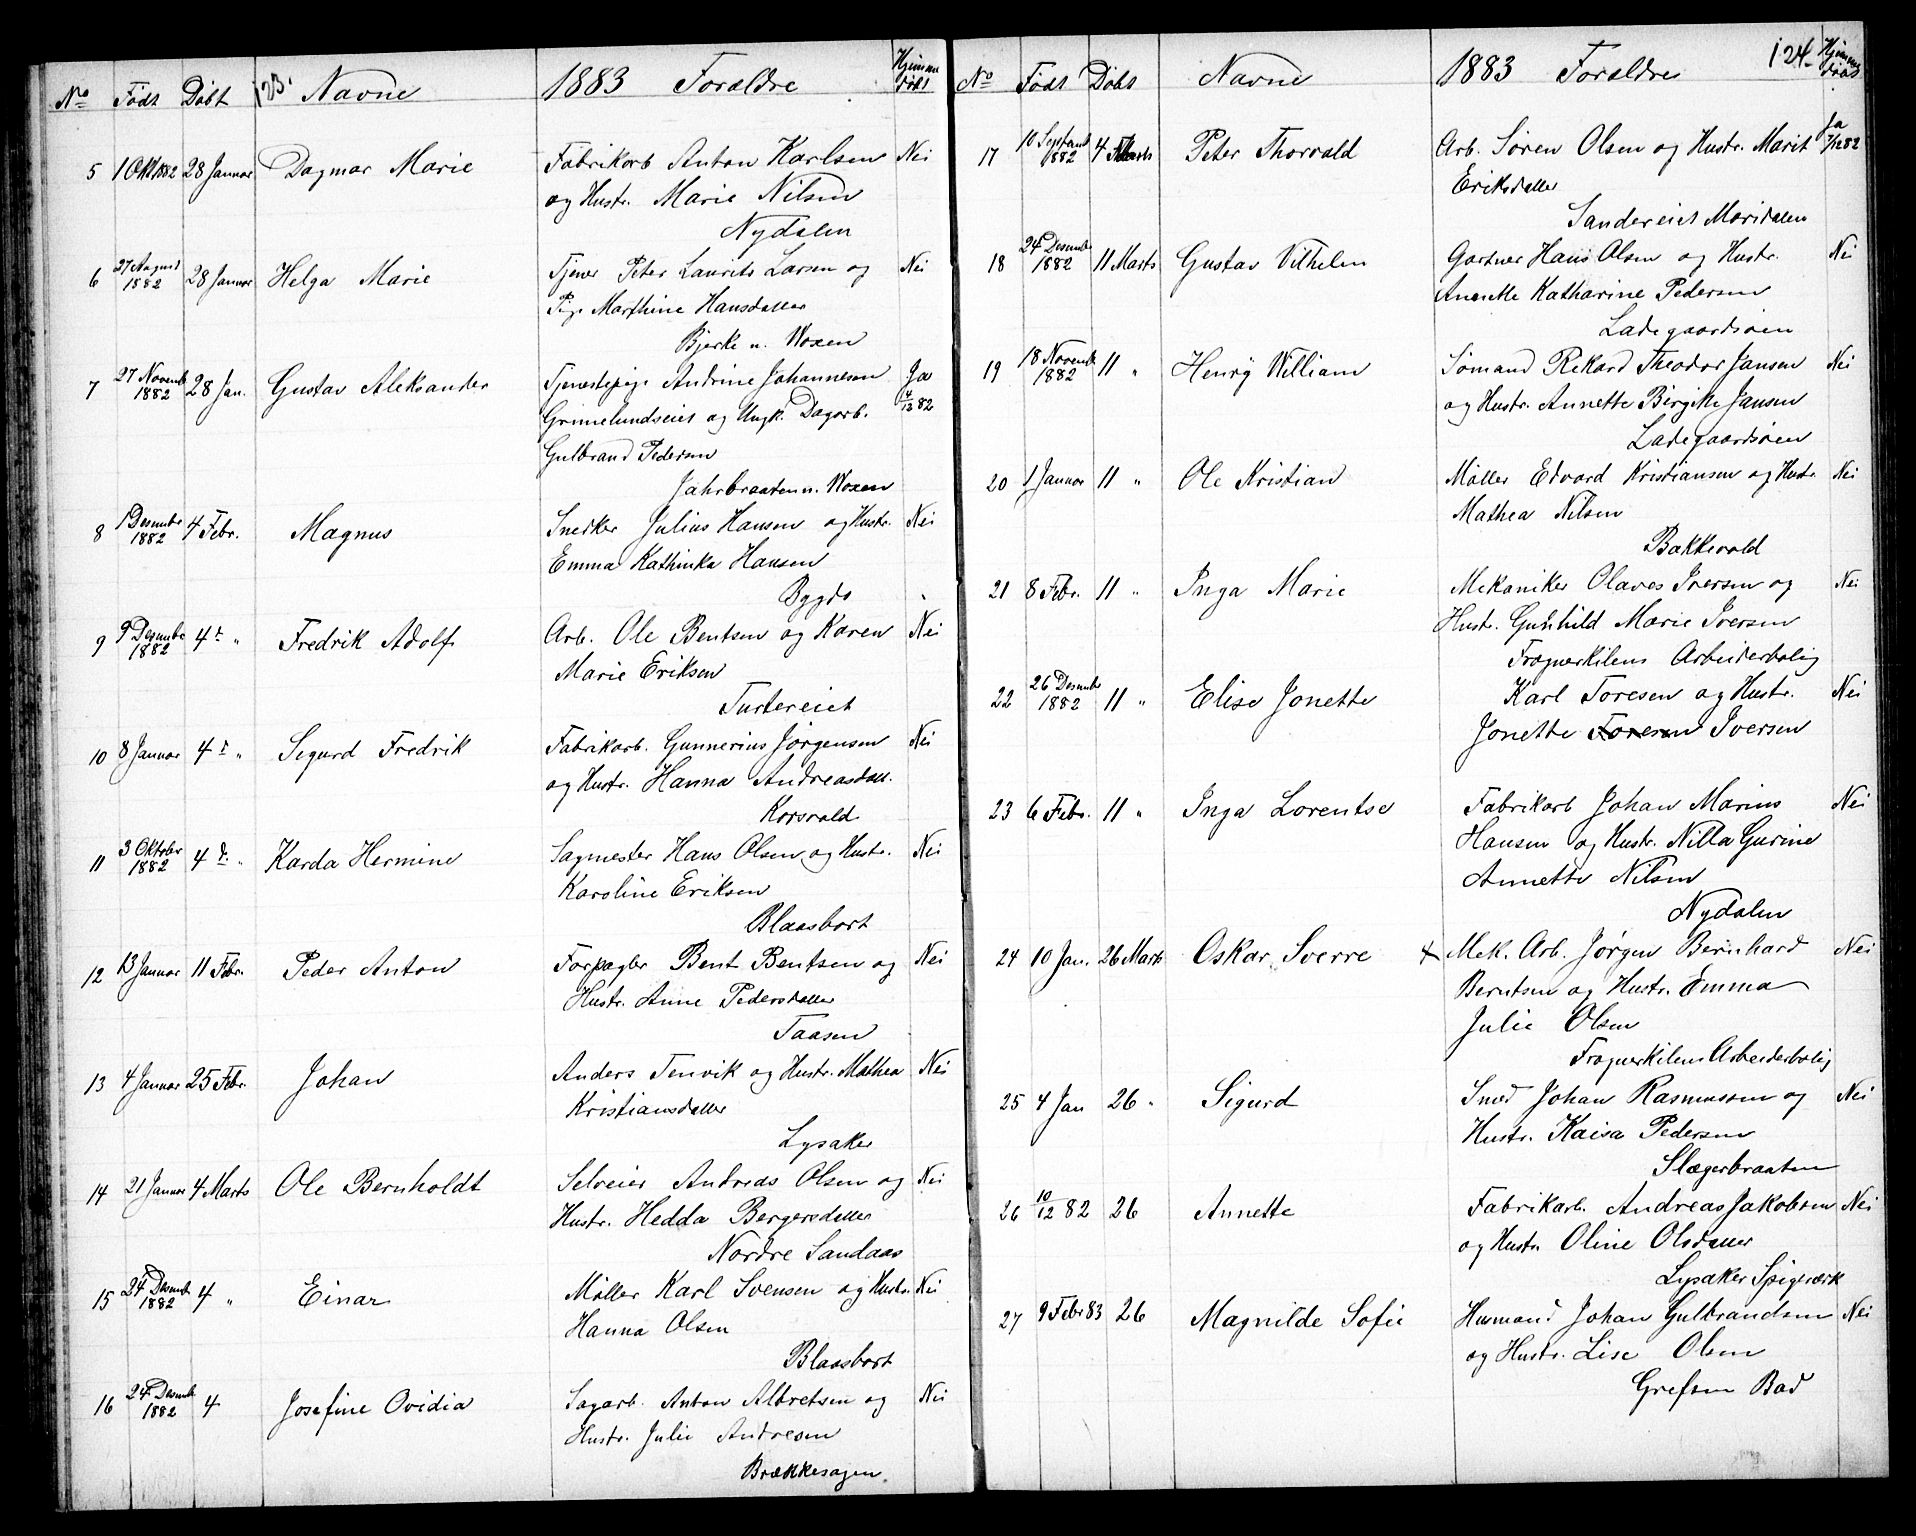 No Født Døbt 123. Navne 1883 Forældre Hjemmedøbt
5 1 Okt 1882 28 Januar Dagmar Marie Fabrikarb Anton Karlsen Nei
og Hustr. Marie Nilsen
Nydalen
6 27 August 1882 28 Januar Helga Marie Tjener Peter Laurits Larsen og Nei
Pige Marthine Hansdatter
Bjerke u. Voxen
7 27 Novemb 1882 28 Jan. Gustav Aleksander Tjenestepige Andrine Johannesen Ja
Grimelundseiet og Ungk. Dagarb. 4/12 82
Gulbrand Pedersen
Jahrbraaten u. Voxen
8 1 Desember 1882 4 Febr. Magnus Snedker Julius Hansen og Hustr. Nei
Emma Kathinka Hansen
Bygdø
9 9 Desember 1882 4de " Fredrik Adolf Arb. Ole Bentsen og Karen Nei
Marie Eriksen
Turtereiet
10 8 Januar 4de " Sigurd Fredrik Fabrikarb. Gunnerius Jørgensen Nei
og Hustr. Hanna Andreasdatt.
Korsvold
11 3 Oktober 1882 4de " Karda Hermine Sagmester Hans Olsen og Hustr. Nei
Karoline Eriksen
Blaasbort
12 13 Januar 11 Febr. Peder Anton Forpagter Bent Bentsen og Nei
Hustr. Anne Pedersdatter
Taasen
13 4 Januar 25 Febr. Johan Anders Tenvik og Hustr. Mathea Nei
Kristiansdatter
Lysaker
14 21 Januar 4 Marts Ole Bernholdt Selveier Andreas Olsen og Nei
Hustr. Hedda Bergersdatter
Nordre Sandaas
15 24 Desemb 1882 4 " Einar Møller Karl Svensen og Hustr. Nei
Hanna Olsen
Blaasbort
16 24 Desemb 1882 4 Josefine Ovidia Sagarb. Anton Albretsen og Nei
Hustr. Julie Andresen
Brækkesagen
No Født Døbt Navne 1883 Forældre 124. Hjemmedøbt
17 10 Septemb 1882 4 Marts Peter Thorvald Arb. Søren Olsen og Hustr. Marit Ja
Eriksdatter
Sandereiet Maridalen
18 24 Desember 1882 11 Marts Gustav Vilhelm Gartner Hans Olsen og Hustr. Nei
Annette Katharine Pedersen
Ladegaardsøen
19 18 Novemb 1882 11 " Henry William Sømand Rekard Theodor Jansen Nei
og Hustr. Annette Birgitte Jansen
Ladegaardsøen
20 1 Januar 11 " Ole Kristian Møller Edvard Kristiansen og Hustr. Nei
Mathea Nilsen
Bakkevold
21 8 Febr. 11 " Inga Marie Mekaniker Olaves Iversen og Nei
Hustr. Gunhild Marie Iversen
Frognerkilens Arbeiderbolig
22 26 Desember 1882 11 " Elise Jonette Karl Toresen og Hustr. Nei
Jonette Toresen Iversen
23 6 Febr. 11 " Inga Lorentse Fabrikarb Johan Marius Nei
Hansen og Hustr. Nilla Gurine
Annette Nilsen
Nydalen
24 10 Jan. 26 Marts Oskar Sverre + Mek. Arb. Jørgen Bernhard Nei
Berntsen og Hustr. Emma
Julie Olsen
Frognerkilens Arbeiderbolig
25 4 Jan 26 " Sigurd Smed Johan Rasmussen og Nei
Hustr. Kaisa Pedersen
Slagerbraaten
26 10/12 82 26 Annette Fabrikarb. Andreas Jakobsen Nei
og Hustr. Oline Olsdatter
Lysaker Spigerværk
27 9 Febr 83 26 Magnilde Sofie Husmand Johan Gulbrandsen Nei
og Hustr. Lise Olsen
Grefsen Bad